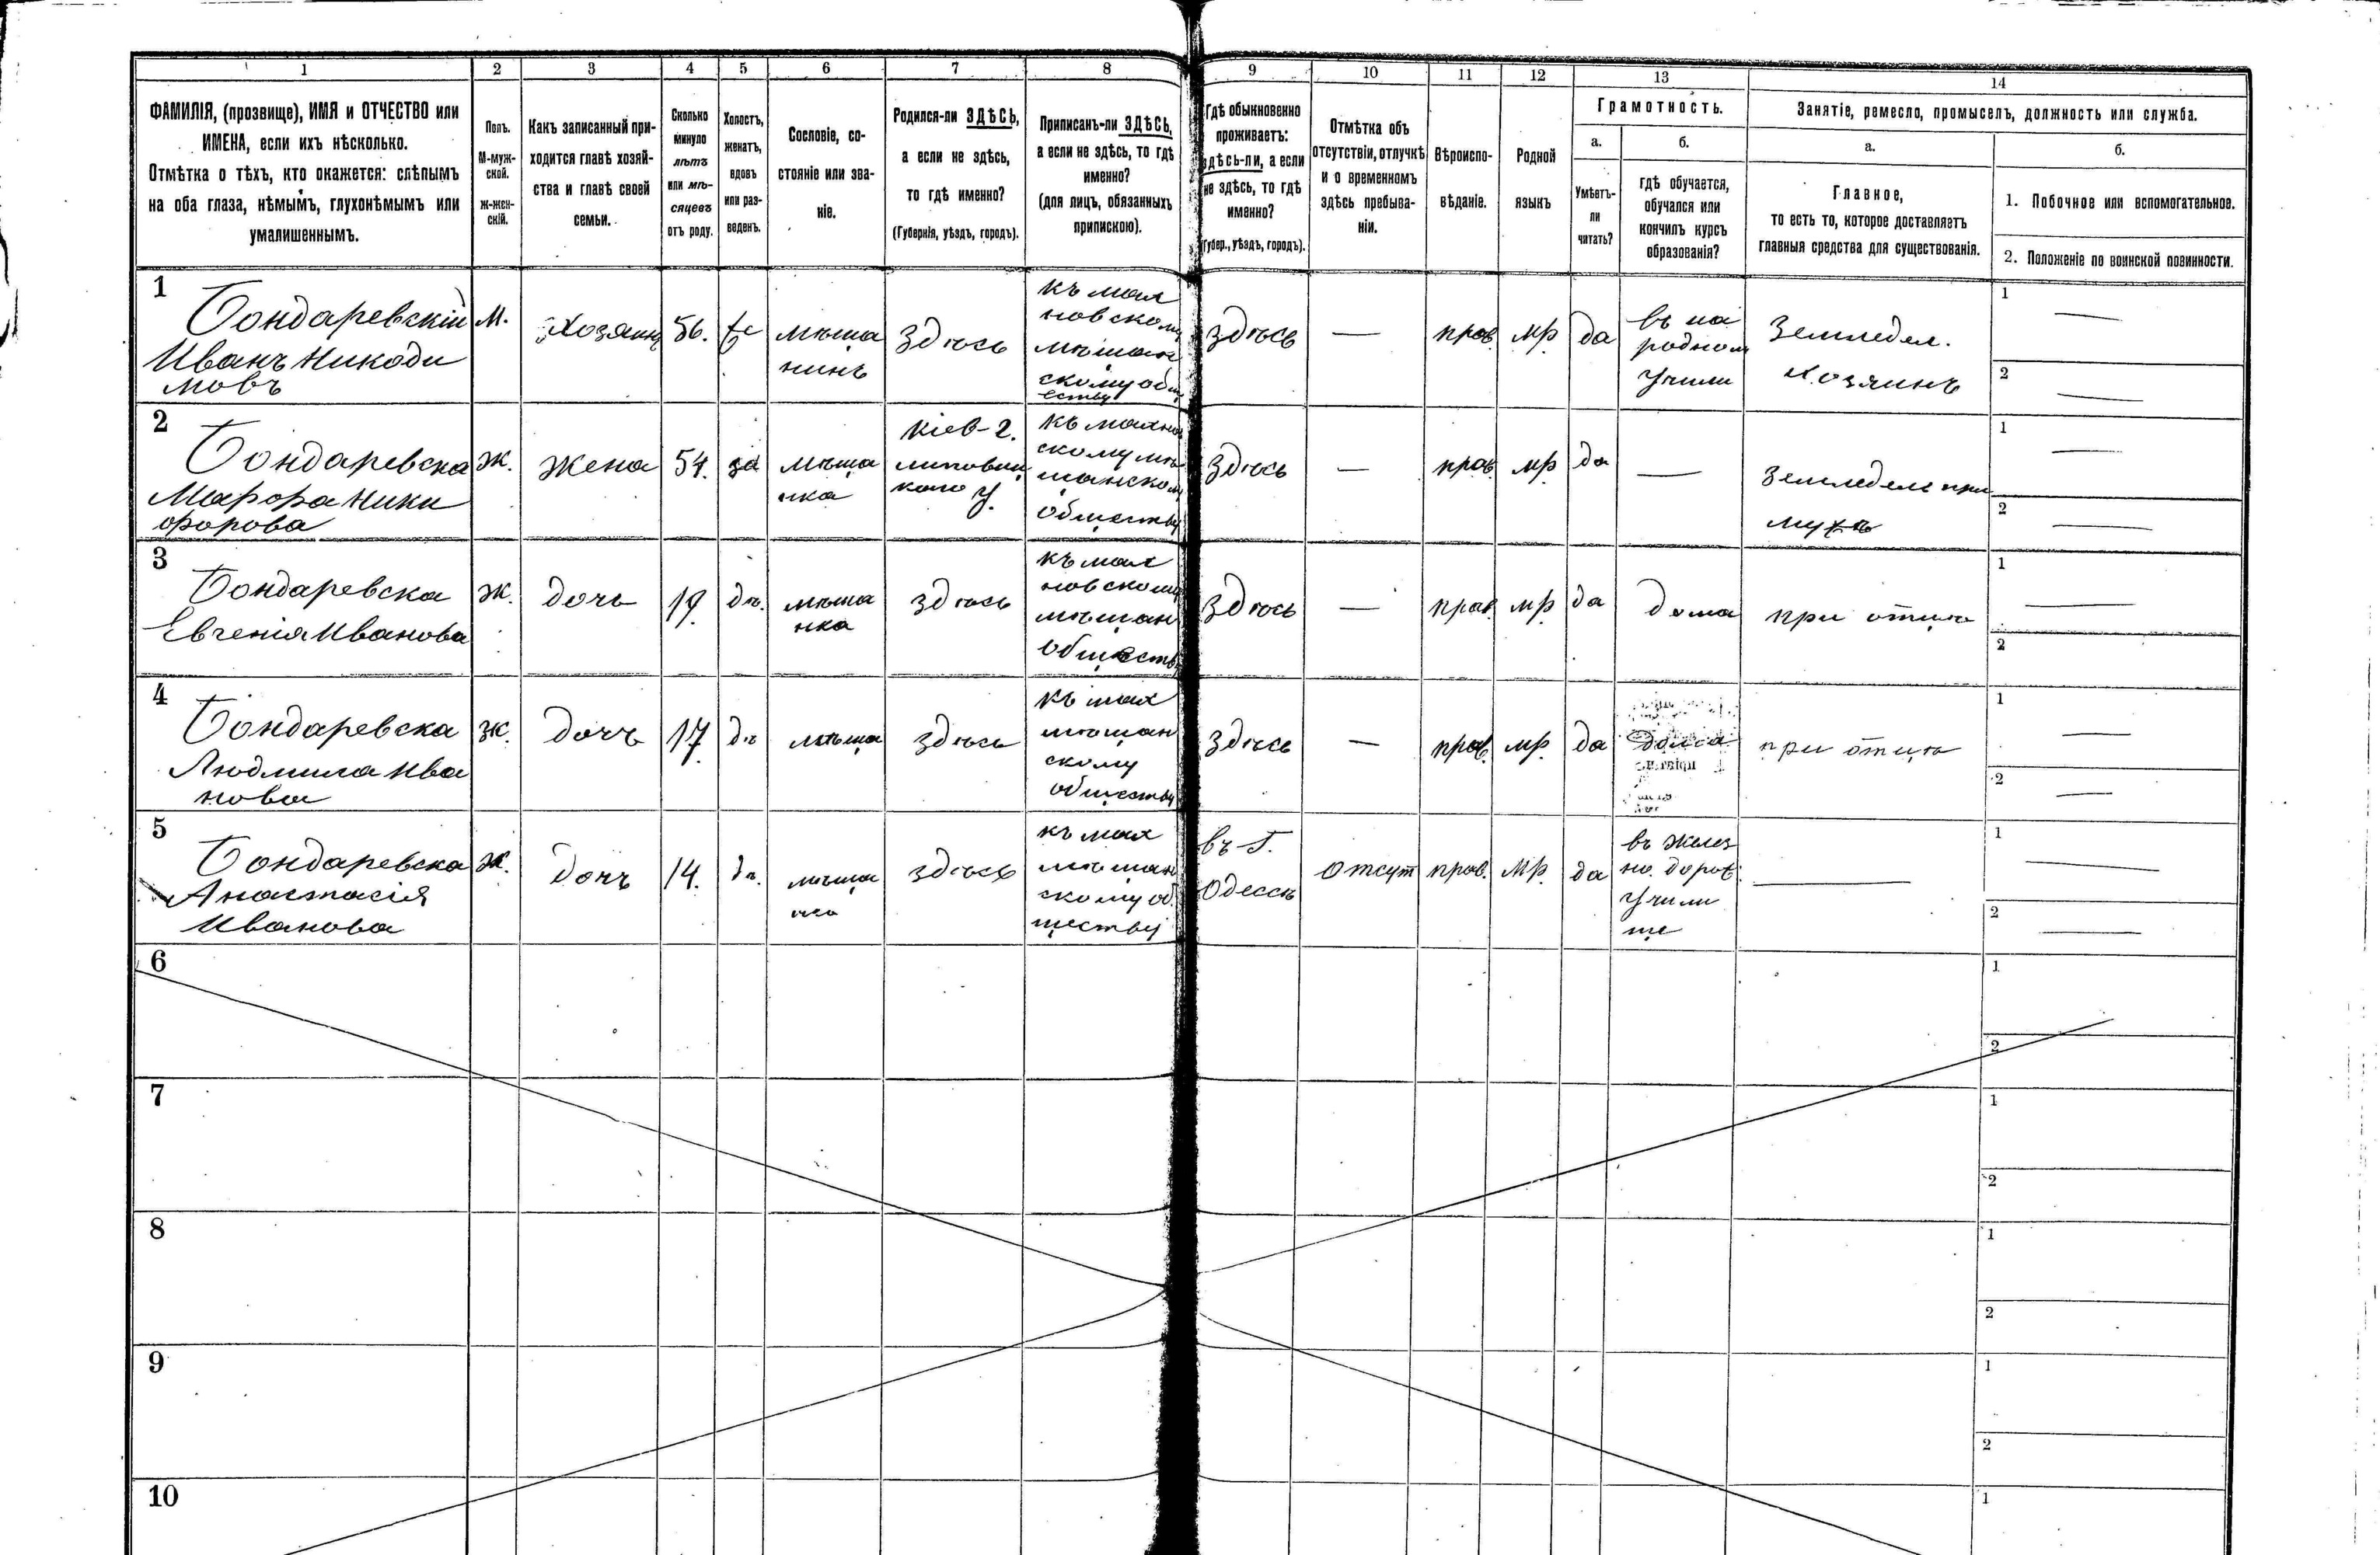 1 2 3 4 5 6 7 8 9 10 11 12 13 14
ФАМИЛІЯ, (прозвище), ИМЯ и ОТЧЕСТВО или
ИМЕНА, если ихъ нѣсколько.
Отмѣтка о тѣхъ, кто окажется: слѣпымъ
на оба глаза, нѣмымъ, глухонѣмымъ или
умалишеннымъ.
Полъ.
М-муж-
ской.
Ж-жен-
скій.
Какъ записанный при-
ходится главѣ хозяй-
ства и главѣ своей
семьи.
Сколько
минуло
лѣтъ
или мѣ-
сяцевъ
отъ роду.
Холостъ,
женатъ,
вдовъ
или раз-
веденъ.
Сословіе, со-
стояніе или зва-
ніе.
Родился-ли ЗДѢСЬ,
а если не здѣсь,
то гдѣ именно?
(Губернія, уѣздъ, городъ).
Приписанъ-ли ЗДѢСЬ,
а если не здѣсь, то гдѣ
именно?
(для лицъ, обязанныхъ
припискою).
Гдѣ обыкновенно
проживаетъ:
здѣсь-ли, а если
не здѣсь, то гдѣ
именно?
(Губер., уѣздъ, городъ).
Отмѣтка объ
отсутствіи, отлучкѣ
и о временномъ
здѣсь пребыва-
ніи.
Вѣроиспо-
вѣданіе.
Родной
языкъ
Грамотность.
а.
Умѣетъ-
ли
читать?
б.
гдѣ обучается,
обучался или
кончилъ курсъ
образованія?
Занятіе, ремесло, промыселъ, должность или служба.
а.
Главное,
то есть то, которое доставляетъ
главныя средства для существованія.
б.
1. Побочное или вспомогательное.
2. Положеніе по воинской повинности.
1
Бондаревскій
Иванъ Никоди
мовъ
М.
Хозяинъ
56.
мѣща
нинъ
здѣсь
къ мах
новскому
мѣщан
скому общ
еству
здѣсь
—
прав.
мр.
да
въ на
родном
учили
Земледел.
хозяинъ
1 —
2 —
2
Бондаревска
Марфа Ники
форова
Ж.
жена
54.
за
мѣща
нка
Кіев-г.
липовец
каго у.
къ махнов
скому мѣ
щанскому
обществу
здѣсь
—
прав.
мр.
да
—
Земледел при
мужѣ
1 —
2 —
3
Бондаревска
Евгенія Иванова
Ж.
дочь
19.
дѣ.
мѣща
нка
здѣсь
къ мах
новскому
мѣщан
обществ
здѣсь
—
прав.
мр.
да
дома
при отцѣ
1 —
2
4
Бондаревска
Людмила Ива
нова
Ж.
дочь
17.
дѣ
мѣща
здѣсь
къ мах
мѣщан
скому
обществу
здѣсь
—
прав.
мр.
да
дома
при отцѣ
1 —
2 —
5
Бондаревска
Анастасія
Иванова
Ж.
дочь
14.
дѣ.
мѣща
нка
здѣсь
къ мах
мѣщан
скому об
ществу
въ Г.
Одессѣ
отсут
прав.
мр.
да
въ желез
но. доров.
училы
ще
—
1 —
2 —
6
1
2
7
1
2
8
1
2
9
1
2
10
1